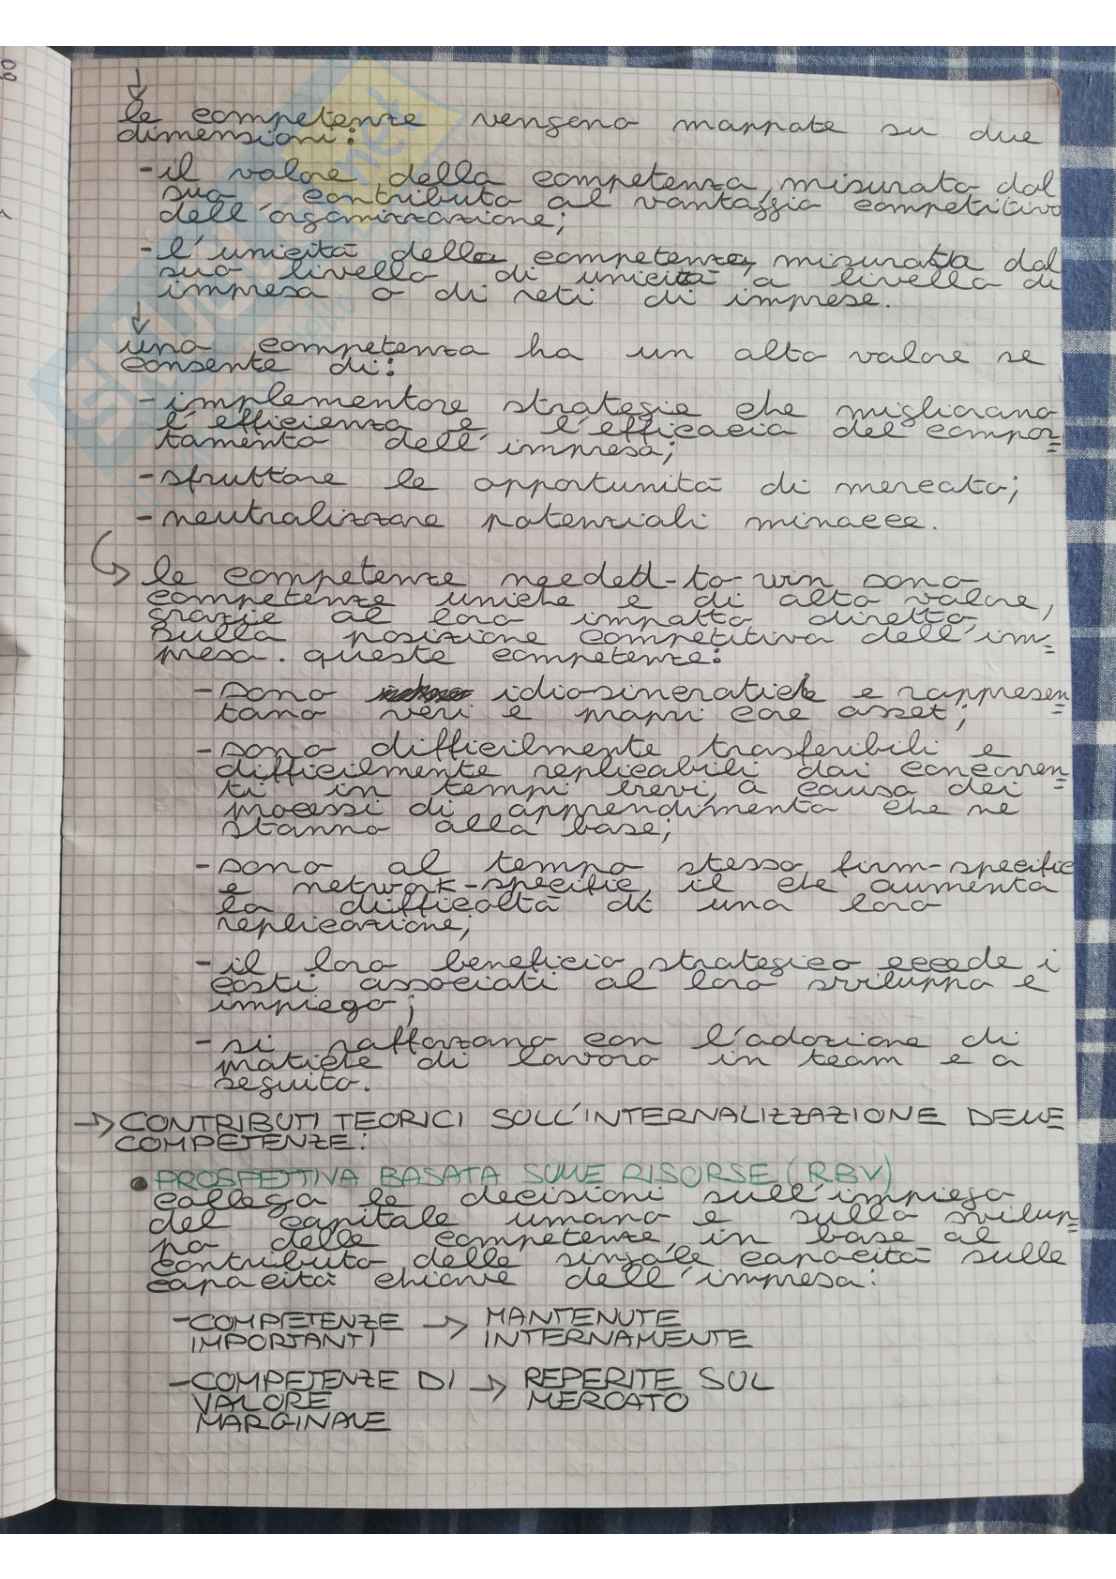 ↓
le competenze vengono mappate su due
dimensioni:
- il valore della competenza, misurato dal
suo contributo al vantaggio competitivo
dell'organizzazione;
- l'unicità della competenza, misurata dal
suo livello di unicità a livello di
impresa o di reti di imprese.
↓
una competenza ha un alto valore se
consente di:
- implementare strategie che migliorano
l'efficienza e l'efficacia del compor=
tamento dell'impresa;
- sfruttare le opportunità di mercato;
- neutralizzare potenziali minacce.
↳ le competenze needed-to-win sono
competenze uniche e di alto valore,
grazie al loro impatto diretto
sulla posizione competitiva dell'im=
presa. queste competenze:
- sono idiosincratiche e rappresen=
tano veri e propri core asset;
- sono difficilmente trasferibili e
difficilmente replicabili dai concorren=
ti in tempi brevi, a causa dei
processi di apprendimento che ne
stanno alla base;
- sono al tempo stesso firm-specific
e network-specific, il che aumenta
la difficoltà di una loro
replicazione;
- il loro beneficio strategico eccede i
costi associati al loro sviluppo e
impiego;
- si rafforzano con l'adozione di
pratiche di lavoro in team e a
seguito.
→ CONTRIBUTI TEORICI SULL'INTERNALIZZAZIONE DELLE
COMPETENZE:
• PROSPETTIVA BASATA SULLE RISORSE (RBV)
collega le decisioni sull'impiego
del capitale umano e sullo svilup=
po delle competenze, in base al
contributo delle singole capacità sulle
capacità chiave dell'impresa:
- COMPETENZE → MANTENUTE
IMPORTANTI INTERNAMENTE
- COMPETENZE DI → REPERITE SUL
VALORE MERCATO
MARGINALE